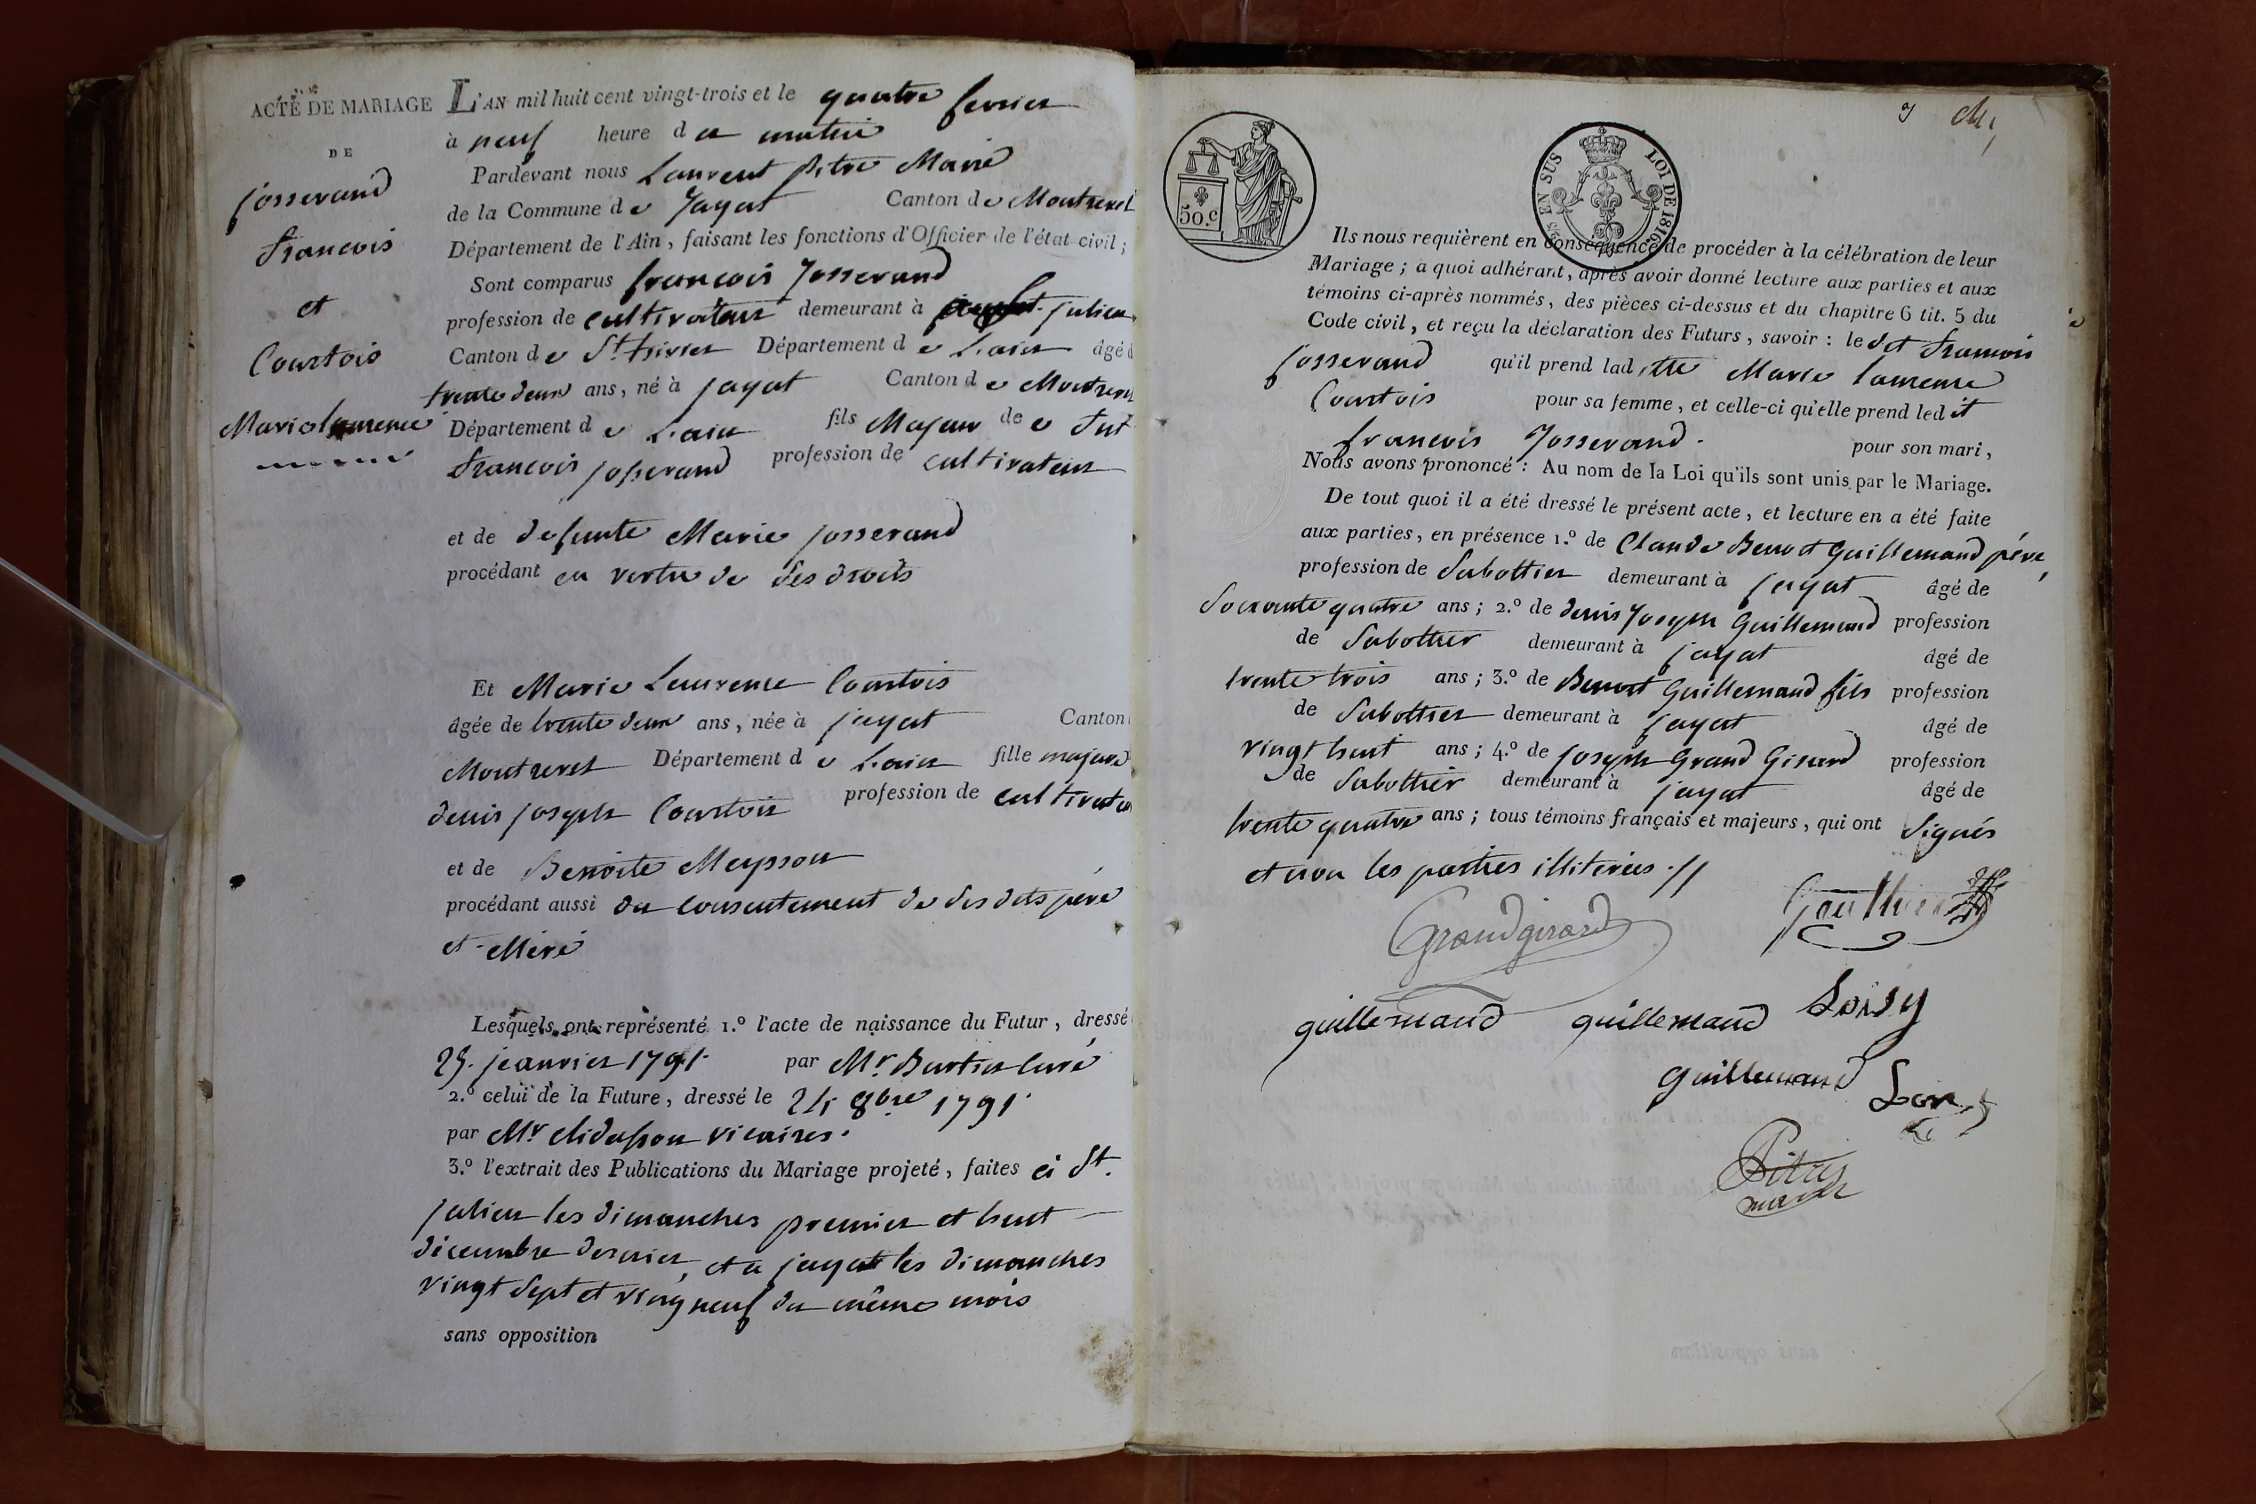 ACTE DE MARIAGE
DE
josserand
francois
et
Courtois
Marie laurence
L'AN mil huit cent vingt-trois et le quatre fevrier
à neuf heure du matin
Pardevant nous Laurent Pitre Maire
de la Commune de Jayat Canton de Montrevel
Département de l'Ain, faisant les fonctions d'Officier de l'état civil;
Sont comparus francois Josserand
profession de cultivateur demeurant à julien
Canton de St. trivier Département de L'ain âgé d
trente deux ans, né à jayat Canton de Montrevel
Département de L'ain fils Majeur de
francois josserand profession de cultivateur
et de defunte Marie josserand
procédant en vertu de ses droits
Et Marie Laurence Courtois
âgée de trente deux ans, née à jayat Canton
Montrevel Département de L'ain fille majeure
denis joseph Courtois profession de cultivateur
et de Benoite Meysson
procédant aussi du consentement de ses dits père
et Mère
Lesquels ont représenté 1.º l'acte de naissance du Futur, dressé
janvier 1791 par Mr. curé
2.º celui de la Future, dressé le 24 8bre 1791
par Mr vicaires.
3.º l'extrait des Publications du Mariage projeté, faites à St.
julien les dimanches premier et huit
décembre dernier, et a jayat les dimanches
vingt sept et ving neuf du même mois
sans opposition
50.c
EN SUS
LOI DE 1816.
Ils nous requièrent en conséquence de procéder à la célébration de leur
Mariage; à quoi adhérant, après avoir donné lecture aux parties et aux
témoins ci-après nommés, des pièces ci-dessus et du chapitre 6 tit. 5 du
Code civil, et reçu la déclaration des Futurs, savoir: le dit francois
josserand qu'il prend laditte Marie laurence
Courtois pour sa femme, et celle-ci qu'elle prend ledit
francois Josserand. pour son mari,
Nous avons prononcé: Au nom de la Loi qu'ils sont unis par le Mariage.
De tout quoi il a été dressé le présent acte, et lecture en a été faite
aux parties, en présence 1.º de Claude Benoit Guillemaud père,
profession de Sabottier demeurant à jayat âgé de
Soixante quatre ans; 2.º de denis Joseph Guillemaud profession
de Sabottier demeurant à jayat âgé de
trente trois ans; 3.º de Benoit Guillemaud fils profession
de Sabottier demeurant à jayat âgé de
vingt huit ans; 4.º de joseph Grand Girard profession
de Sabottier demeurant à jayat âgé de
trente quatre ans; tous témoins français et majeurs, qui ont Signés
et non les parties illiterées.//
Grandgirard
guillemaud guillemaud Loisy
guillemaud
Pitre
maire